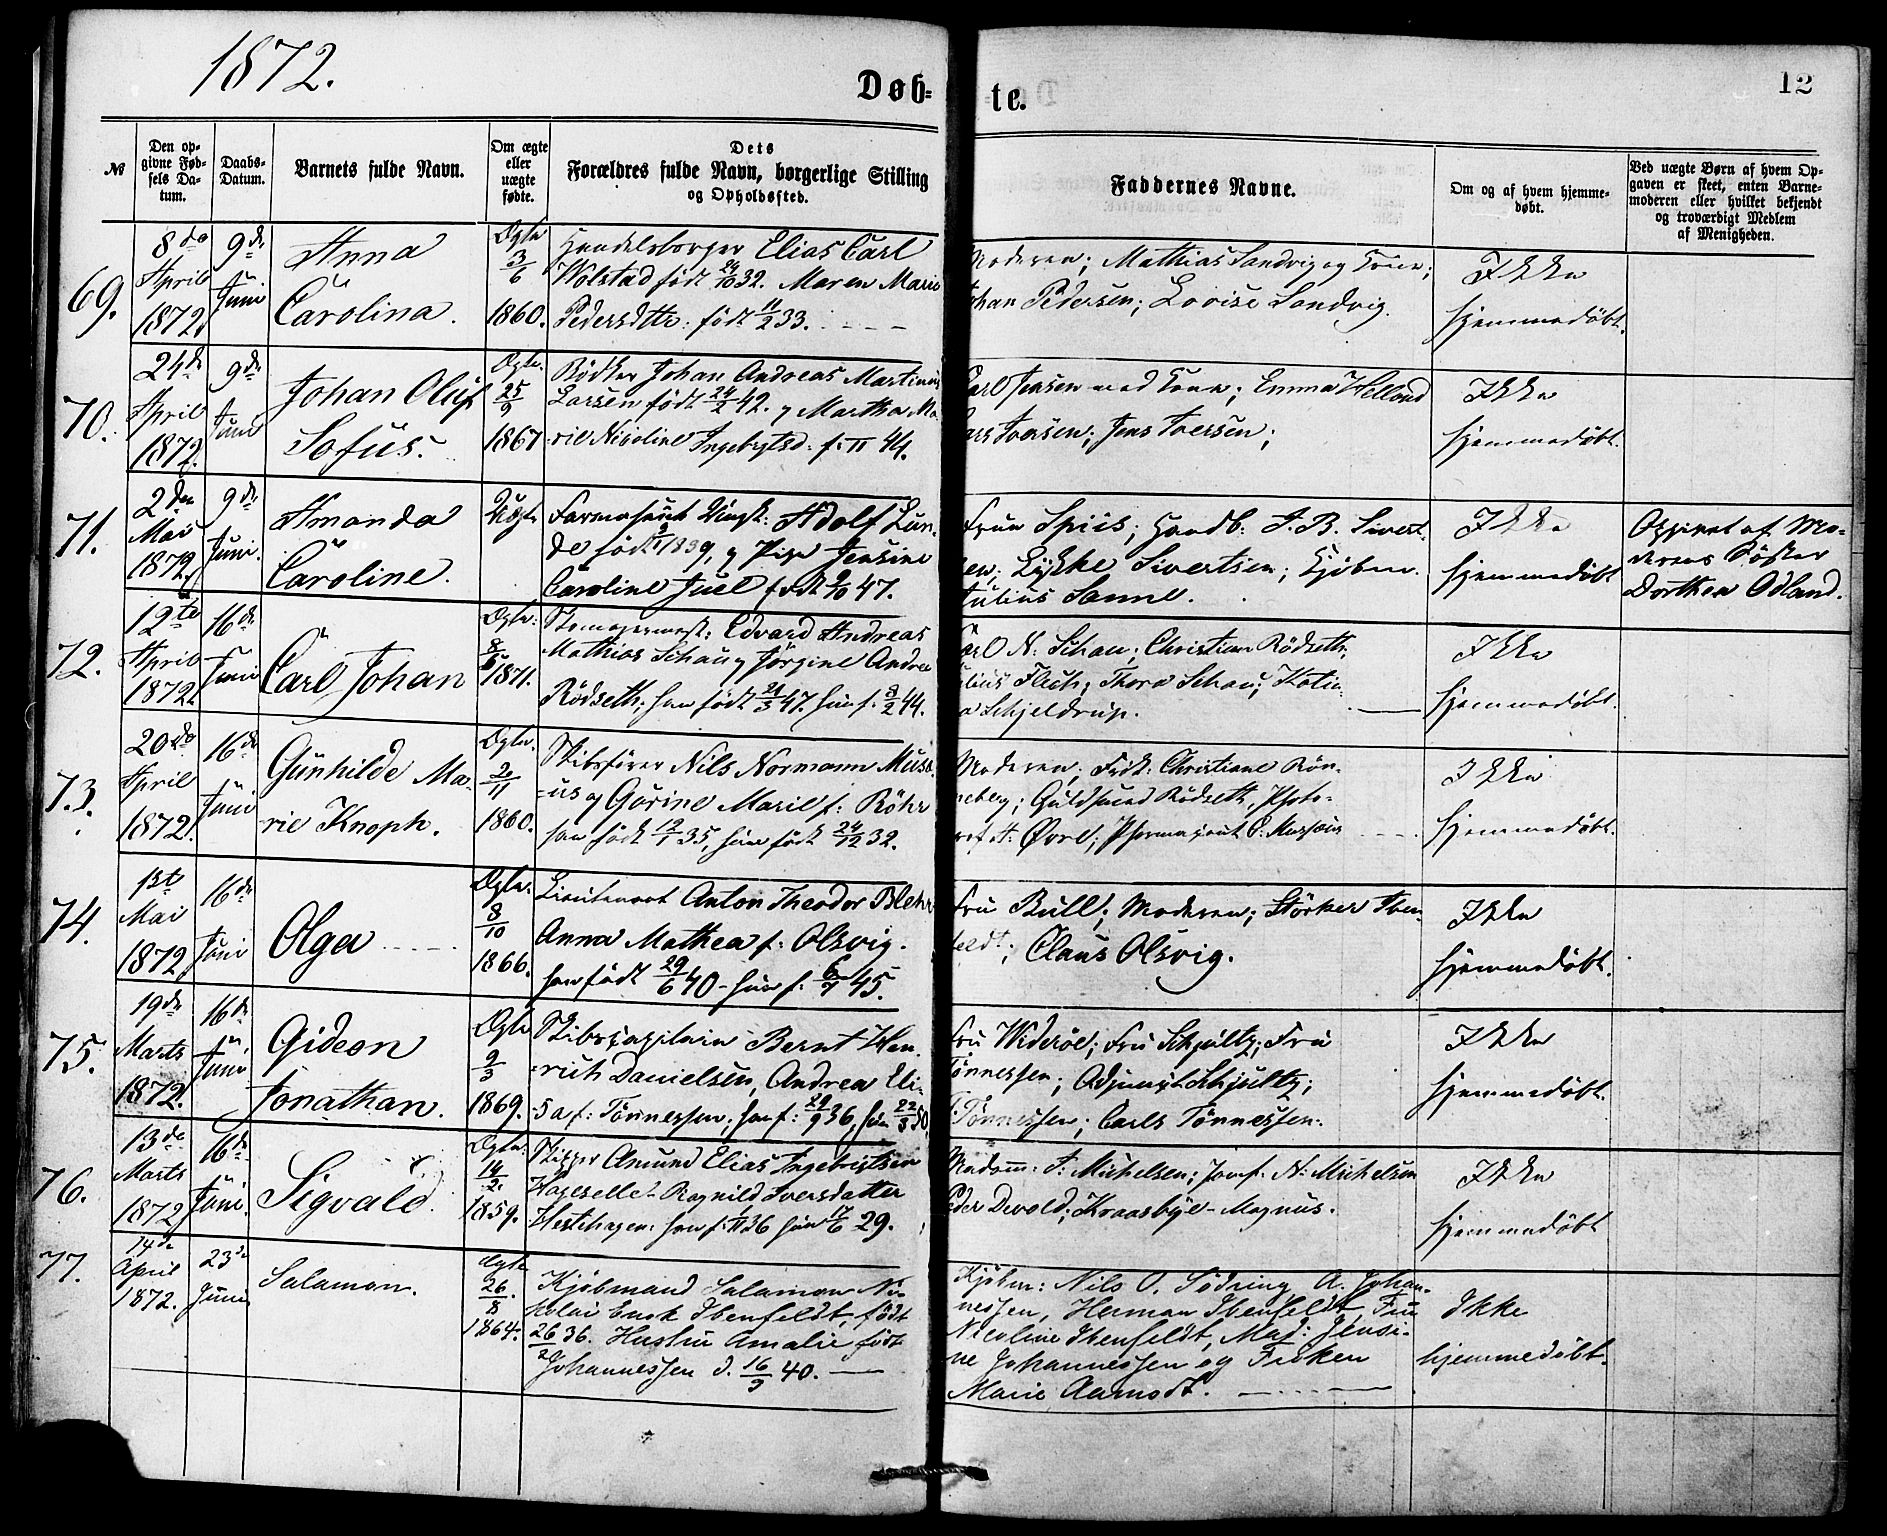 1872.
Døb-
te.
12
№
Den op-
givne Fød-
sels Da-
tum.
Daabs-
Datum.
Barnets fulde Navn.
Om ægte
eller
uægte
fødte.
Dets
Forældres fulde Navn, borgerlige Stilling
og Opholdssted.
Faddernes Navne.
Om og af hvem hjemme-
døbt.
Ved uægte Børn af hvem Op-
gaven er skeet, enten Barne-
moderen eller hvilket bekjendt
og troværdigt Medlem
af Menigheden.
69.
8de
April
1872.
9de
Juni
Anna
Carolina.
Ægte
3/6
1860.
Handelsborger Elias Carl
Wolstad født 29/10 32. Maren Marie
Pedersdttr: født 11/2 33.
Moderen; Mathias Sandvig og Kone;
Johan Pedersen; Lovise Sandvig.
Ikke
hjemmedøbt.
70.
24de
April
1872.
9de
Juni
Johan Oluf
Sofus.
Ægte.
25/9
1867
Bødker Johan Andreas Martinus
Larsen født 24/2 42. og Martha Ma-
rie Nicoline Ingebrgtsd: f: 44.
Carl Jensen med Kone; Emma Helland
Lars Iversen; Jens Iversen;
Ikke
hjemmedøbt.
71.
2den
Mai
1872
9de
Juni.
Amanda
Caroline.
Uægte
Farmaseut Adolf Lun-
de født 1839, og Pige Jensine
Caroline Juel født 9/10 47.
Frue Spiis; Handb: J. B. Sivert-
sen; Lykke Sivertsen; Kjøbm.
Julius Sanne.
Ikke
hjemmedøbt
Opgivet af Mo-
derens Søster
Dorthea Odland.
72.
12te
April
1872.
16de
Juni
Carl Johan
Ægte:
1871.
Skomagermest: Edvard Andreas
Mathias Schau og Jørgine Andrea
Rødseth; han født 21/3 47. hun f. 3/2 44.
Carl N. Schau; Christian Rødseth;
Julius Fluh; Thora Schau; Katin-
ka Schjeldrup.
Ikke
hjemmedøbt.
73.
20de
April
1872.
16de
Juni
Gunhilde Ma-
rie Knoph.
Ægte.
1860.
Skibsfører Nils Normann Musæ-
us og Gurine Marie f: Røhr
han født 12/1 35, hun født 24/12 32.
Moderen; Frøk: Christiane Røn-
neberg; Guldsmed Rødseth, Photo-
graf A: Øvre; Pharmaceut C: Musæus
Ikke
hjemmedøbt.
74.
13de
Mai
1872
16de
Juni
Olga
Ægte:
8/10
1866.
Lieutenant Anton Theodor Blehr
Anna Mathea f: Olsvig.
han født 29/6 40 - hun f: 45.
Fru Bull; Moderen; Størker Iben-
feldt; Claus Olsvig.
Ikke
hjemmedøbt.
75.
19de
Marts
1872.
16de
Juni
Gideon
Jonathan.
Ægte
2/3
1869.
Skibscapitain Bernt Hen-
rich Danielsen, Andrea Eli-
sa f: Tønnessen; han f: 29/9 36, hun 50.
Fru Widerøe; Fru Schjultz; Fru
Tønnessen; Adjunct Schjultz;
Tønnessen; Carls Tønnessen.
Ikke
hjemmedøbt.
76.
13de
Marts
1872
16de
Juni.
Sigvald.
Ægte.
14/2
1859.
Skipper Amund Elias Ingebrigtsen
Ragnild Iversdatter
Hestehagen: han f: 36 hun 17/6 29.
Madam: J: Michelsen; Jomf. N: Michelsen
Peder Devold; Kraasbye - Magnus.
Ikke
hjemmedøbt
77.
14de
April
1872.
23de
Juni
Salamon.
Ægte
26/8
1864.
Kjøbmand Salamon Ni-
kolai Enok Ibenfeldt, født
26/2 36. Hustru Amalie født
Johannessen d. 16/3 40.
Kjøbm: Nils O. Sødring, A. Johan-
nessen, Herman Ibenfeldt, Fru
Nicoline Ibenfeldt, Mad: Jensi-
ne Johannessen og Frøken
Marie Aarnodt.
Ikke
hjemmedøbt.